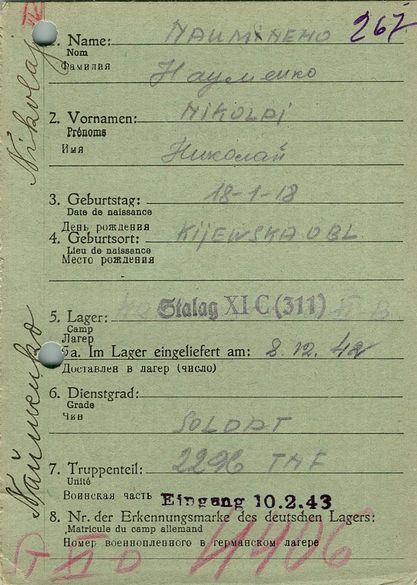 267
1. Name: NAUMENENO
Nom
Фамилия Науменко
2. Vornamen: NIKOLAI
Prénoms
Имя Николай
3. Geburtstag: 18-1-18
Date de naissance
День рождения
4. Geburtsort: KIJEWSKA OBL
Lieu de naissance
Место рождения
5. Lager: Stalag XI C (311)
Camp
Лагерь
5a. Im Lager eingeliefert am: 8.12.42
Доставлен в лагер (число)
6. Dienstgrad:
Grade
Чин SOLDAT
7. Truppenteil: 2296
Unité
Воинская часть Eingang 10.2.43
8. Nr. der Erkennungsmarke des deutschen Lagers:
Matricule du camp allemand
Номер военнопленного в германском лагере
Naumenko Nikolaj